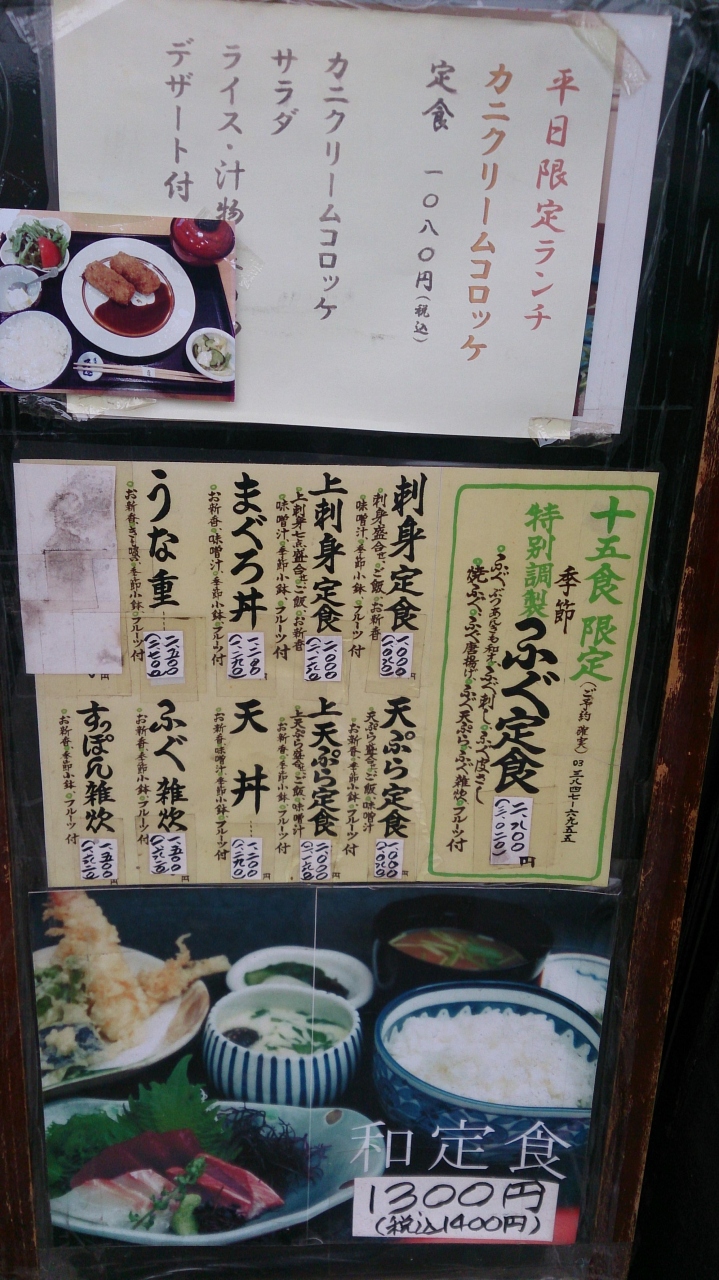 平日限定ランチ
カニクリームコロッケ
定食 一〇八〇円(税込)
カニクリームコロッケ
サラダ
ライス・汁物
デザート付
十五食 限定
(ご予約 確実) 03 三八四七ー六九五五
季節
特別調製
ふぐ定食
二、八〇〇円
刺身定食
刺身盛合せ、ご飯、お新香
味噌汁、季節小鉢、フルーツ付
一、〇〇〇円
上刺身定食
上刺身七点盛合せ、ご飯、お新香
味噌汁、季節小鉢、フルーツ付
二、〇〇〇円
まぐろ丼
お新香、味噌汁、季節小鉢、フルーツ付
一、二〇〇
うな重
季節小鉢、フルーツ付
二、五〇〇
天ぷら定食
天ぷら盛合せ、ご飯、味噌汁
お新香、季節小鉢、フルーツ付
一、〇〇〇円
上天ぷら定食
上天ぷら盛合せ、ご飯、味噌汁
お新香、季節小鉢、フルーツ付
二、〇〇〇円
天丼
お新香、味噌汁、季節小鉢、フルーツ付
一、二〇〇円
ふぐ雑炊
お新香、季節小鉢、フルーツ付
一、五〇〇円
すっぽん雑炊
お新香、季節小鉢、フルーツ付
一、五〇〇円
和定食
1300円
(税込1400円)